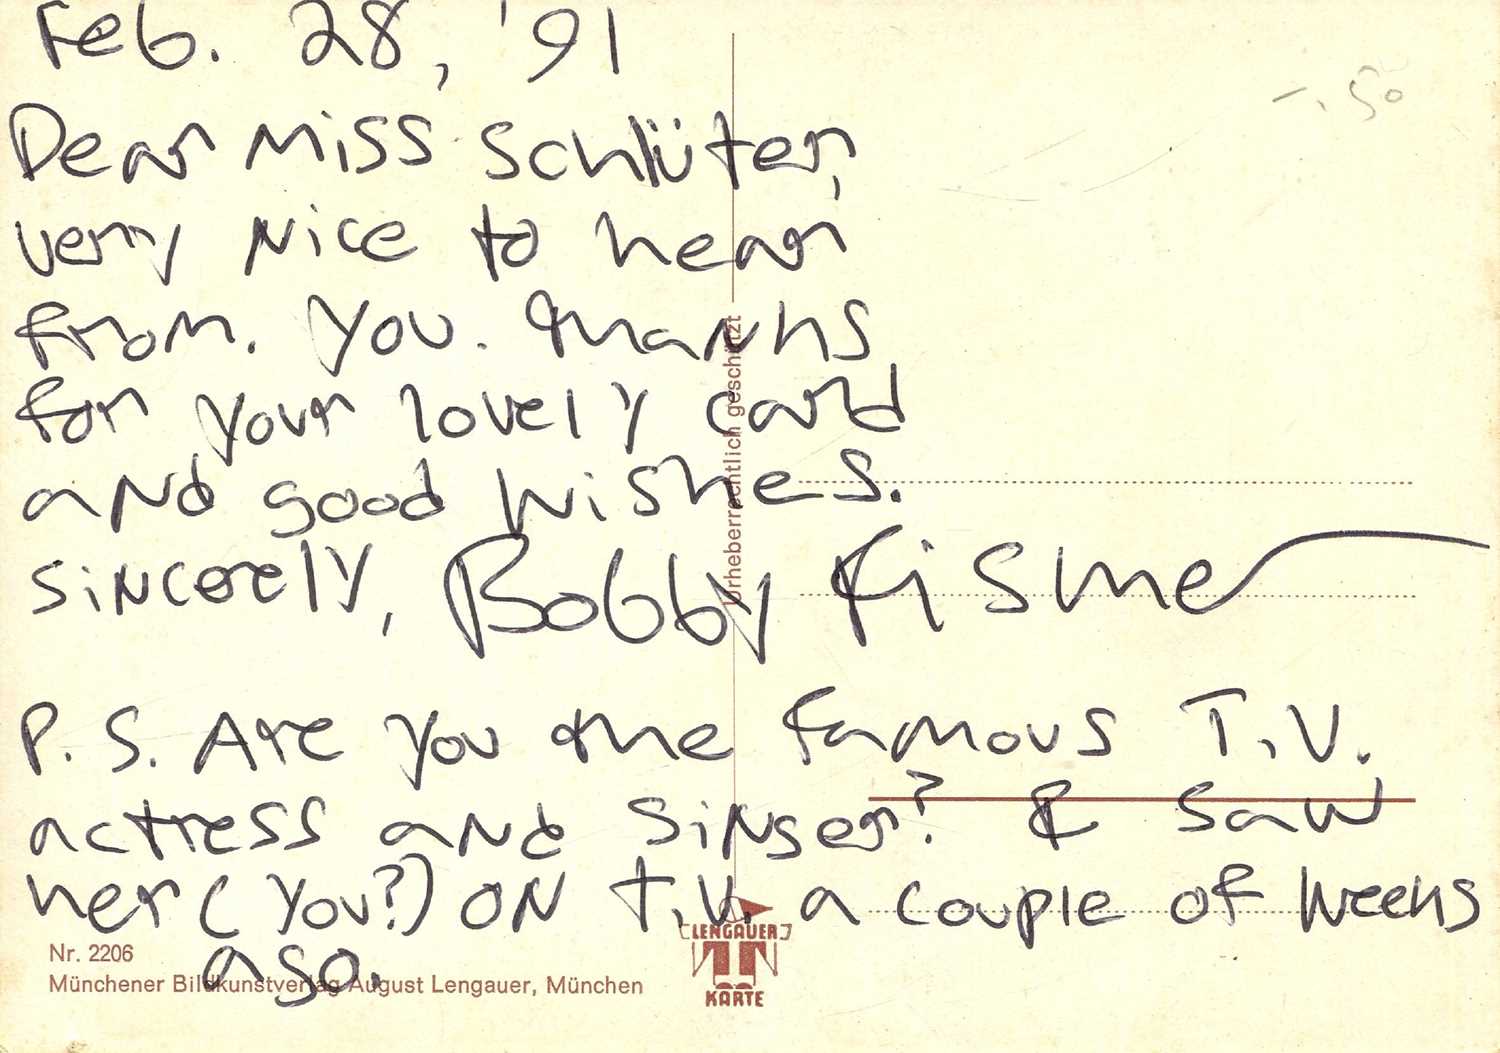 Feb. 28, '91
-.50
Dear Miss Schlüter,
very nice to hear
from. you. thanks
for your lovely card
and good wishes.
sincerely, Bobby Fischer
P.S. Are you the famous T.V.
actress and singer? I saw
her (you?) on T.V. a couple of weeks
ago.
Urheberrechtlich geschützt
Nr. 2206
Münchener Bildkunstverlag August Lengauer, München
LENGAUER
KARTE